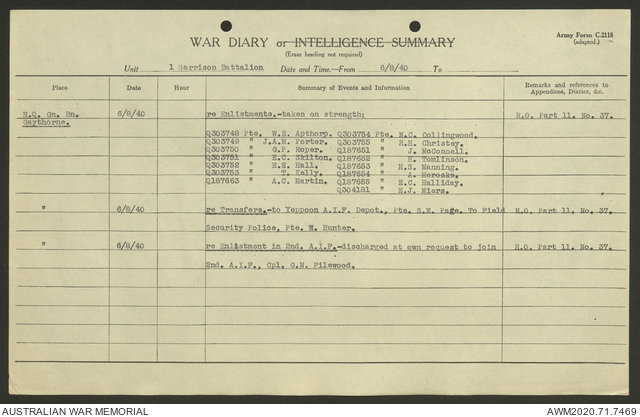 Army Form C.2118
(adapted.)
WAR DIARY or INTELLIGENCE SUMMARY
(Erase heading not required)
Unit 1 Garrison Battalion Date and Time.—From 6/8/40 To
Place Date Hour Summary of Events and Information Remarks and references to Appendices, Diaries, &c.
H.Q. Gn. Bn. 6/8/40 re Enlistments.-taken on strength; R.O. Part 11. No. 37.
Gaythorne.
Q303748 Pte. W.E. Apthorp. Q303754 Pte. N.C. Collingwood.
Q303749 " J.A.M. Porter. Q303755 " R.H. Christey.
Q303750 " G.P. Roper. Q187651 " J. McConnell.
Q303751 " E.C. Skilton. Q187652 " H. Tomlinson.
Q303752 " E.E. Hall. Q187653 " H.S. Manning.
Q303753 " T. Kelly. Q187654 " A.
Q187663 " A.C. Martin. Q187655 " E.C. Halliday.
Q304181 " E.J. Miers.
" 6/8/40 re Transfers.-to Yeppoon A.I.F. Depot., Pte. S.E. Page. To Field R.O. Part 11. No. 37.
Security Police, Pte. W. Hunter.
" 6/8/40 re Enlistment in 2nd. A.I.F.-discharged at own request to join R.O. Part 11. No. 37.
2nd. A.I.F., Cpl. G.N. Pilewood.
AUSTRALIAN WAR MEMORIAL AWM2020.71.7469